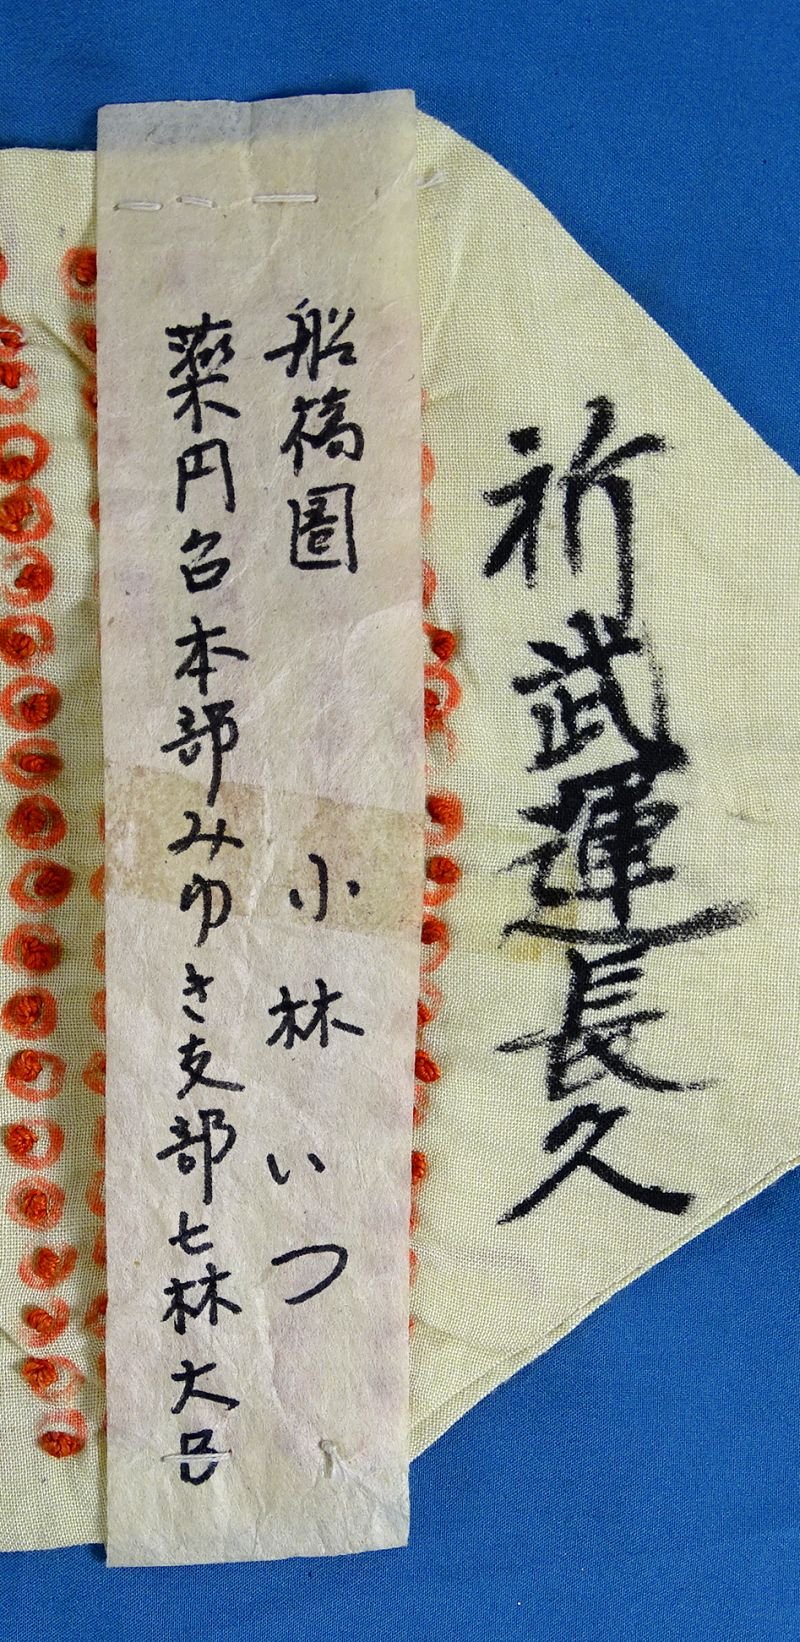 祈武運長久
船橋圖 小林いつ
薬円台本部みゆき支部七林大呂